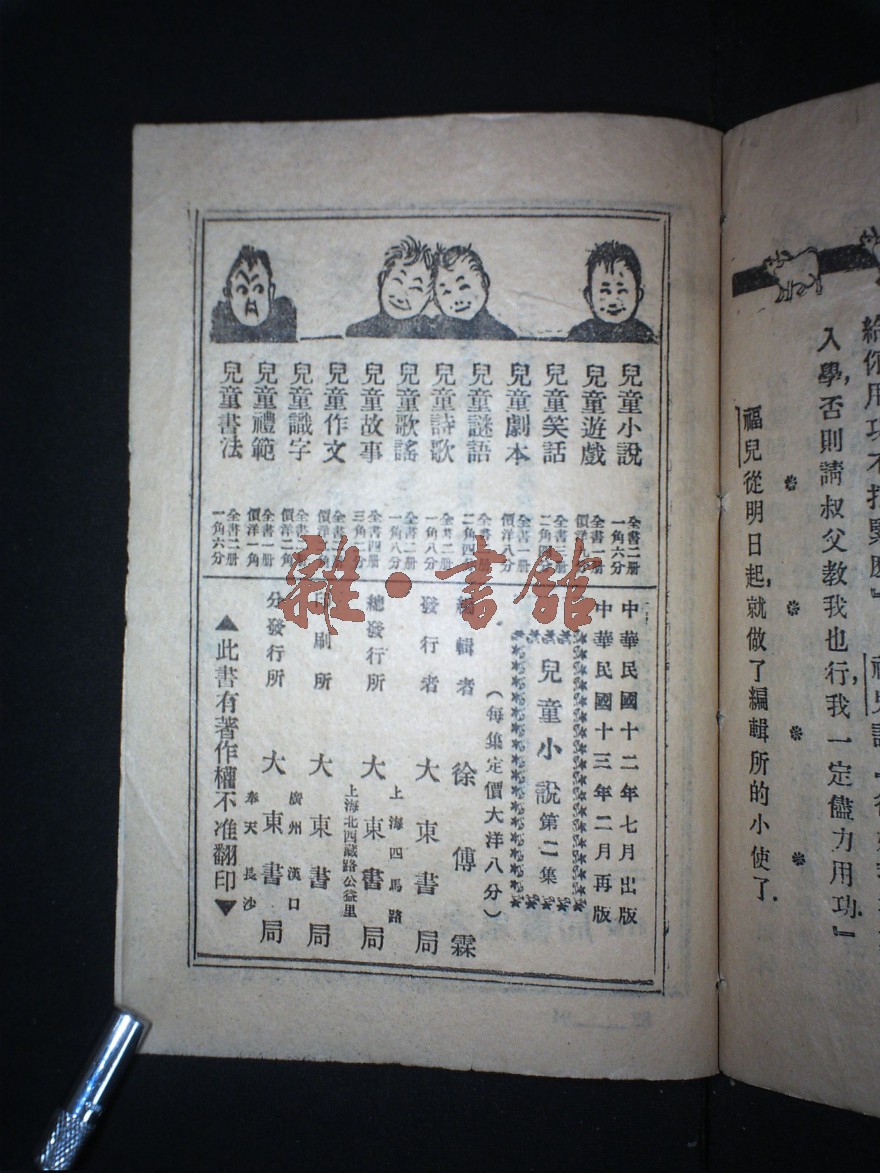 給你用功
入學，否則請叔父教我也行，我一定儘力用功．』
福兒從明日起，就做了編輯所的小使了．
兒童小說
全書二册
一角六分
兒童遊戲
全書一册
兒童笑話
兒童劇本
全書一册
價洋八分
兒童謎語
二角四分
兒童詩歌
全書二册
一角八分
兒童歌謠
全書二册
一角八分
兒童故事
全書四册
兒童作文
兒童識字
價洋二角
兒童禮範
全書一册
價洋一角
兒童書法
全書二册
一角六分
中華民國十二年七月出版
中華民國十三年二月再版
兒童小說第二集
（每集定價大洋八分）
編輯者 徐傅霖
發行者 大東書局
上海四馬路
總發行所 大東書局
上海北西藏路公益里
印刷所 大東書局
廣州 漢口
分發行所 大東書局
奉天 長沙
▲此書有著作權不准翻印▼
雜·書館